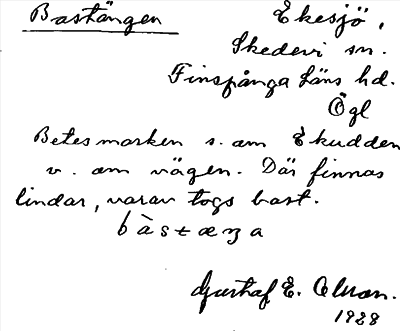 Bastängen
Ekesjö,
Skedevi sn.
Finspånga läns hd.
Ögl
Betesmarken s. om Ekudden
v. om vägen. Där finnas
lindar, varav togs bast.
bàstæŋa
Gustaf E. Olson.
1928